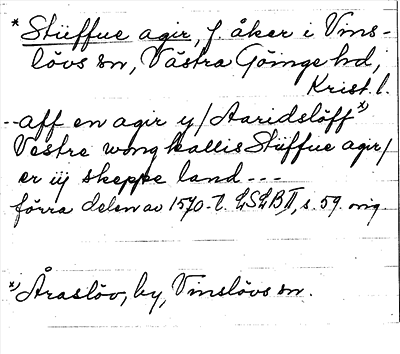 * Stüffue agir, f. åker i Vins-
lövs sn, Västra Göinge hd,
Krist. l.
-- aff en agir y/ Aaridslöff x)
Vestre wong kallis Stüffue agir/
er iij skeppe land ---
förra delen av 1570-t. LSLB II, s. 59. orig.
x) Åraslöv, by, Vinslövs sn.